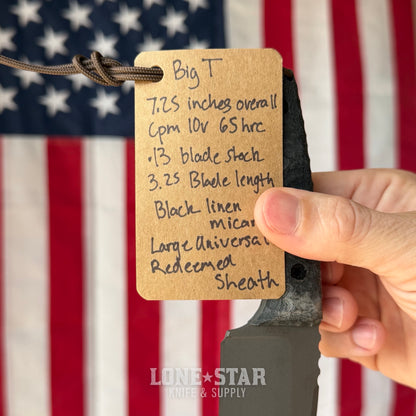 Big T
7.25 inches overall
Cpm 10v 65hrc
.13 blade stock
3.25 Blade length
Black linen
micar
Large Universal
Redeemed
Sheath
LONE★STAR
KNIFE & SUPPLY